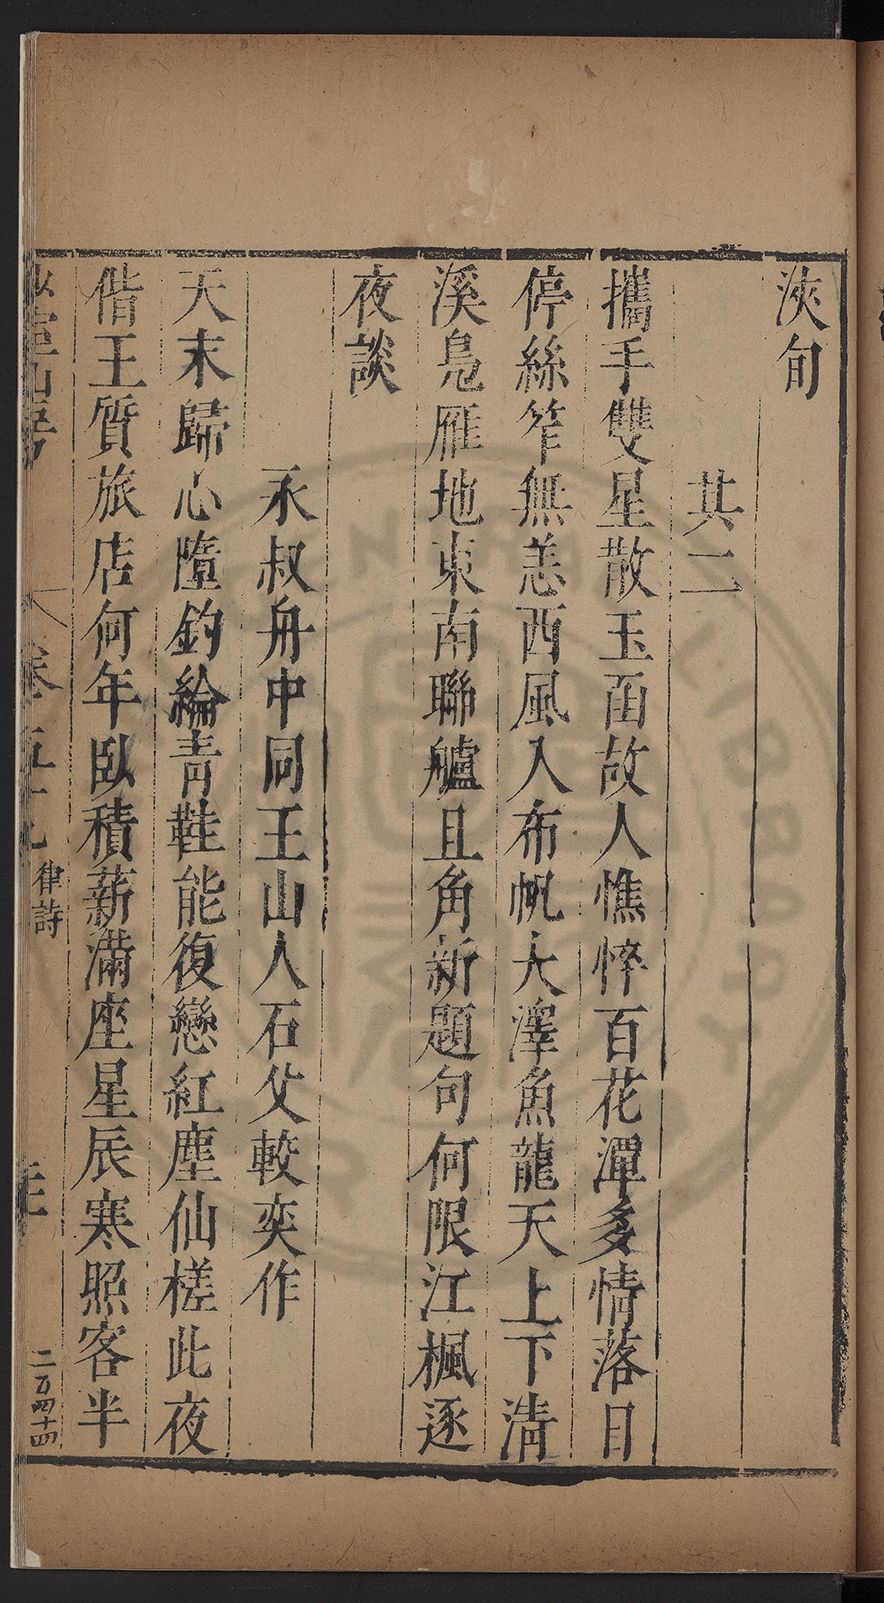 浹旬
其二
攜手雙星散玉函故人憔悴百花潭多情落日
停絲笮無恙西風入布帆大澤魚龍天上下清
溪鳧雁地東南聯艫且角新題句何限江楓逐
夜談
永叔舟中同王山人石父較奕作
天末歸心墮釣綸青鞋能復戀紅塵仙槎此夜
偕王質旅店何年臥積薪滿座星辰寒照客半
卷五十九
律詩
二百四十四